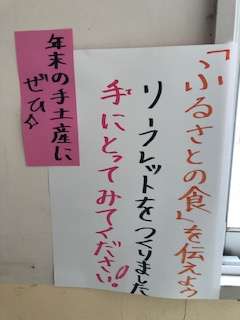 「ふるさとの食」を伝えよう
リーフレットをつくりました
手にとってみてください!
年末の手土産に
ぜひ☆